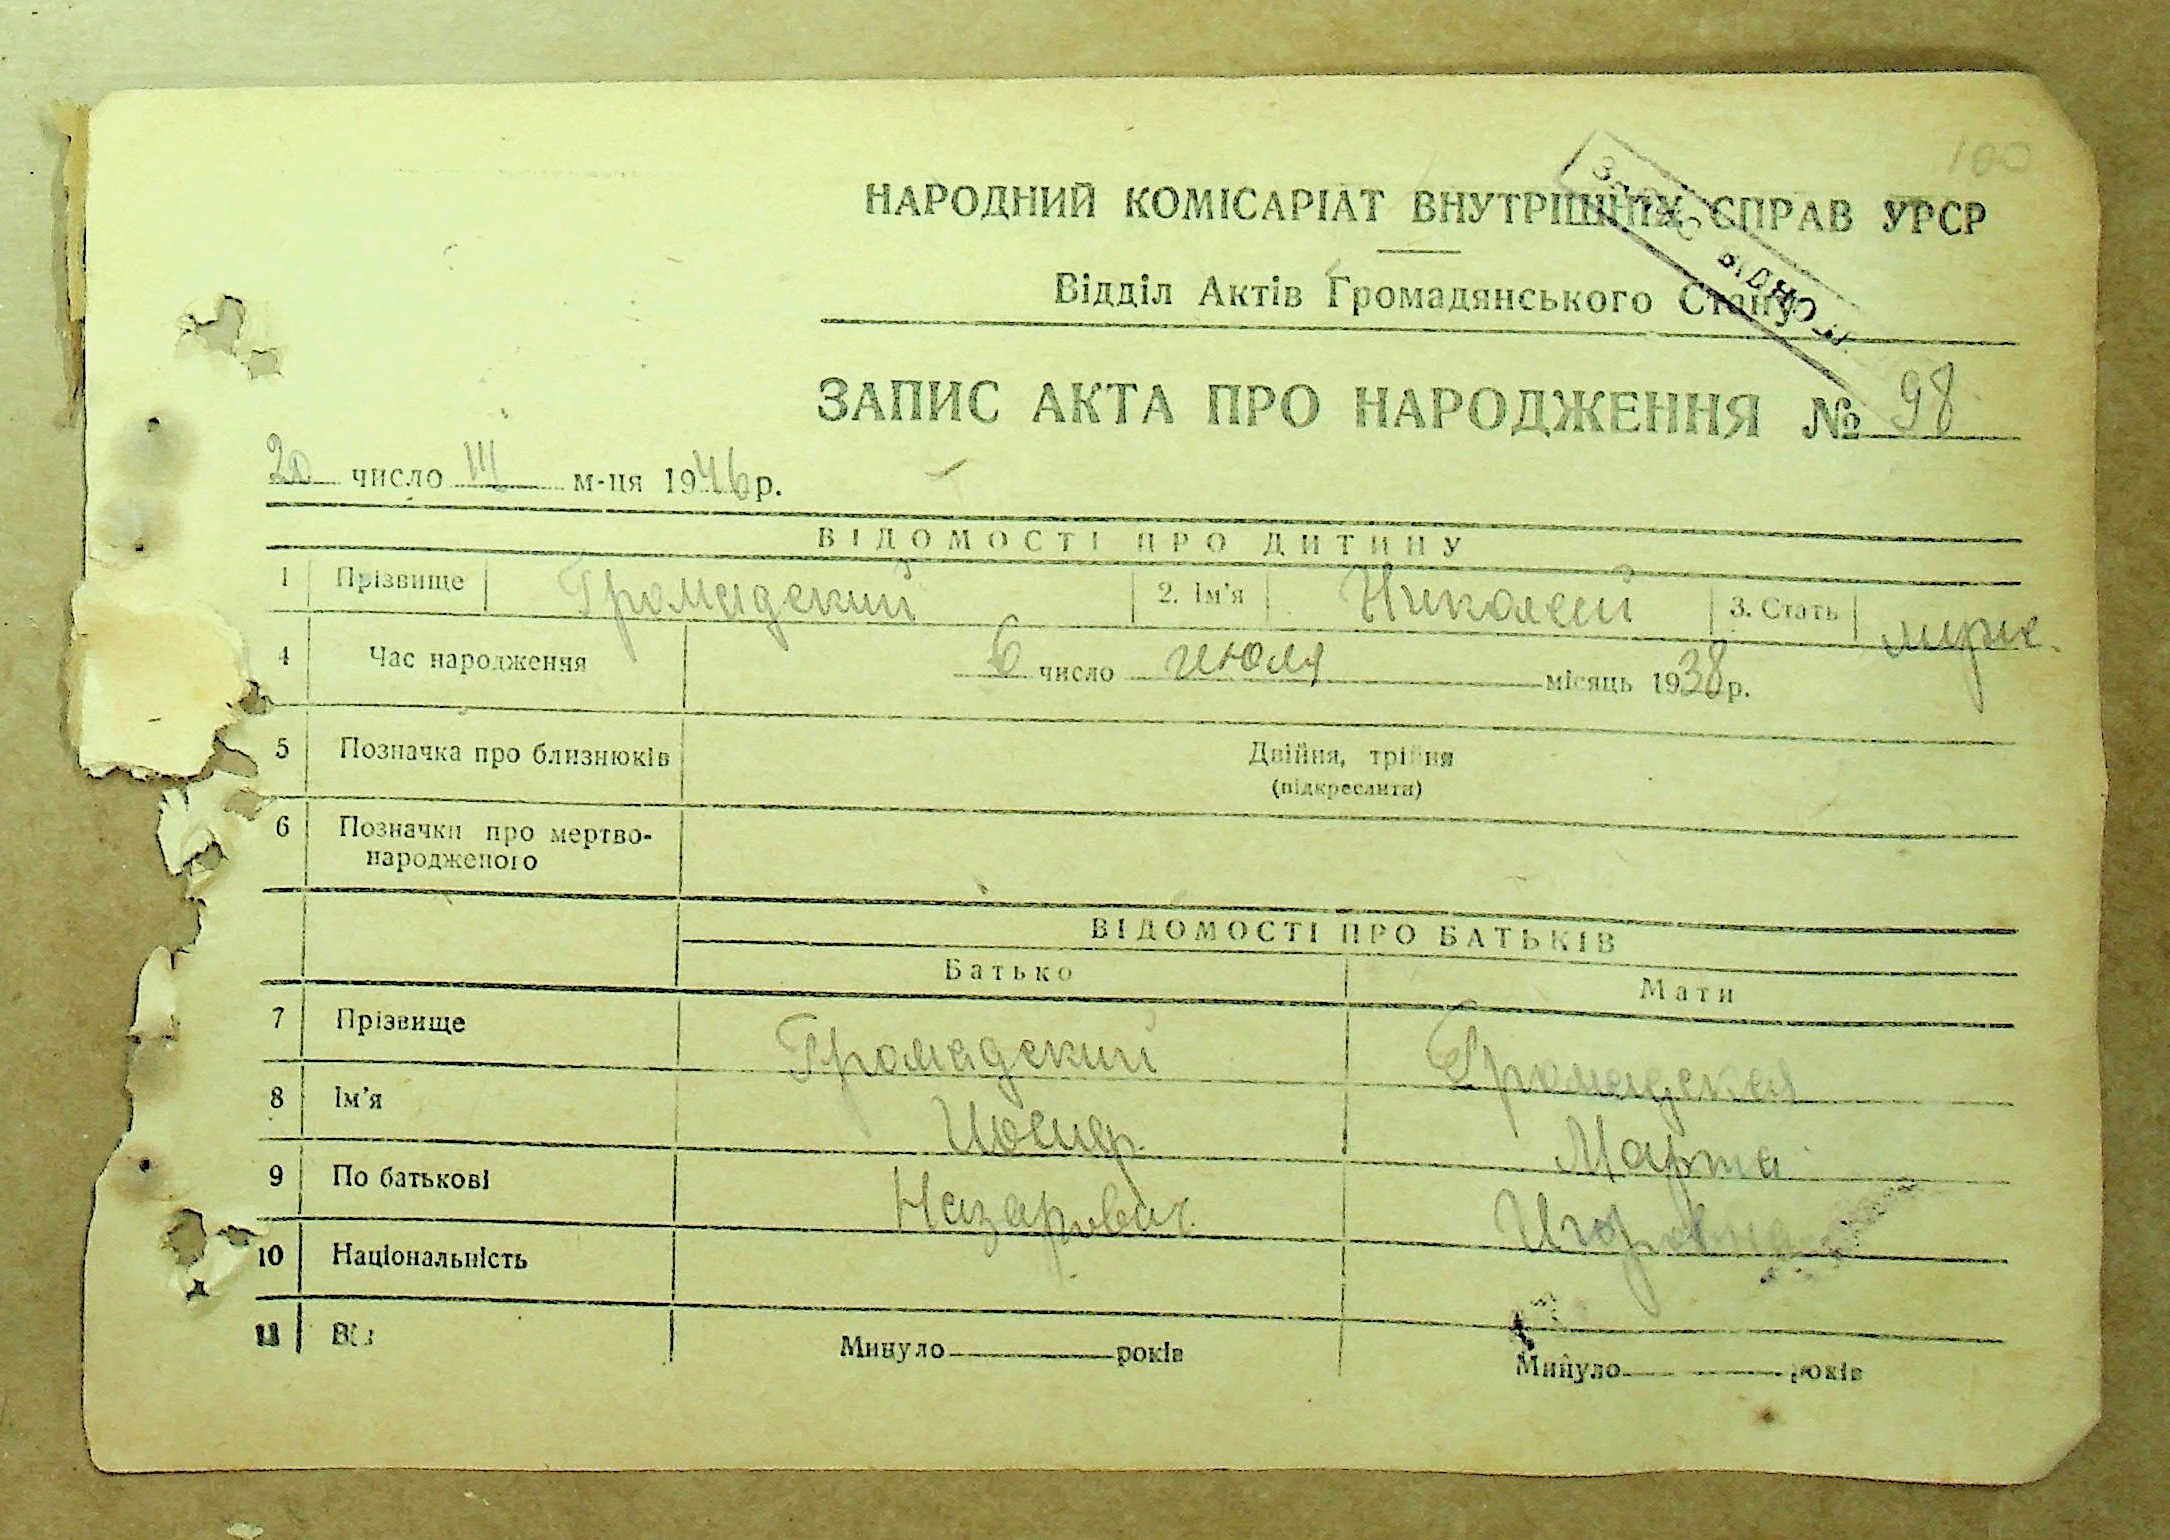 100
НАРОДНИЙ КОМІСАРІАТ ВНУТРІШНІХ СПРАВ УРСР
Відділ Актів Громадянського Стану
ЗАПИС АКТА ПРО НАРОДЖЕННЯ № 98
20 число III м-ця 1946 р.
ВІДОМОСТІ ПРО ДИТИНУ
1 Прізвище Громадский 2. Ім'я Николай 3. Стать муж.
4 Час народження 6 число июля місяць 1938 р.
5 Позначка про близнюків Двійня, трійня
(підкреслити)
6 Позначки про мертво-
народженого
ВІДОМОСТІ ПРО БАТЬКІВ
Батько Мати
7 Прізвище Громадский Громадская
8 Ім'я Иосиф Марта
9 По батькові Назарович
10 Національність
11 Минуло років Минуло років